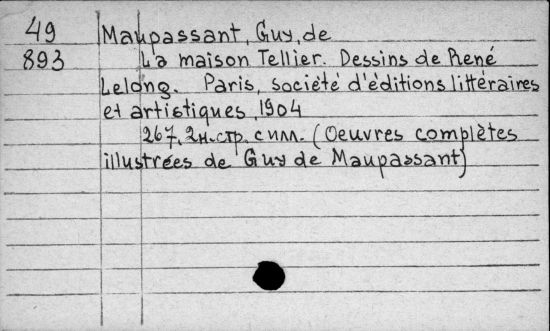 49 Maupassant, Guy, de
893 La maison Tellier. Dessins de René
Lelong. Paris, société d'éditions littéraires
et artistiques, 1904
267, 2н.стр. с илл. (Oeuvres complètes
illustrées de Guy de Maupassant)